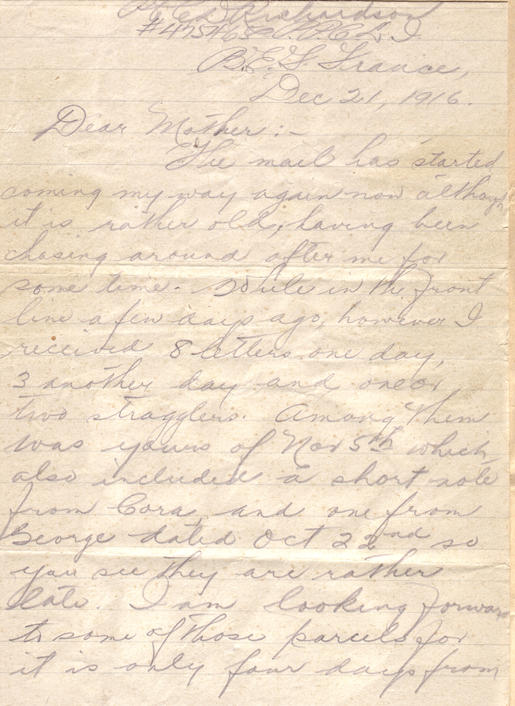 Richardson
B.E.F. France,
Dec 21, 1916.
Dear Mother:-
The mail has started
coming my way again now although
it is rather old, having been
chasing around after me for
some time. While in the front
line a few days ago, however I
received 8 letters one day,
3 another day and one or
two stragglers. Among them
was yours of Nov 5th which
also included a short note
from Cora, and one from
George dated Oct 22nd so
you see they are rather
late. I am looking forward
to some of those parcels for
it is only four days from